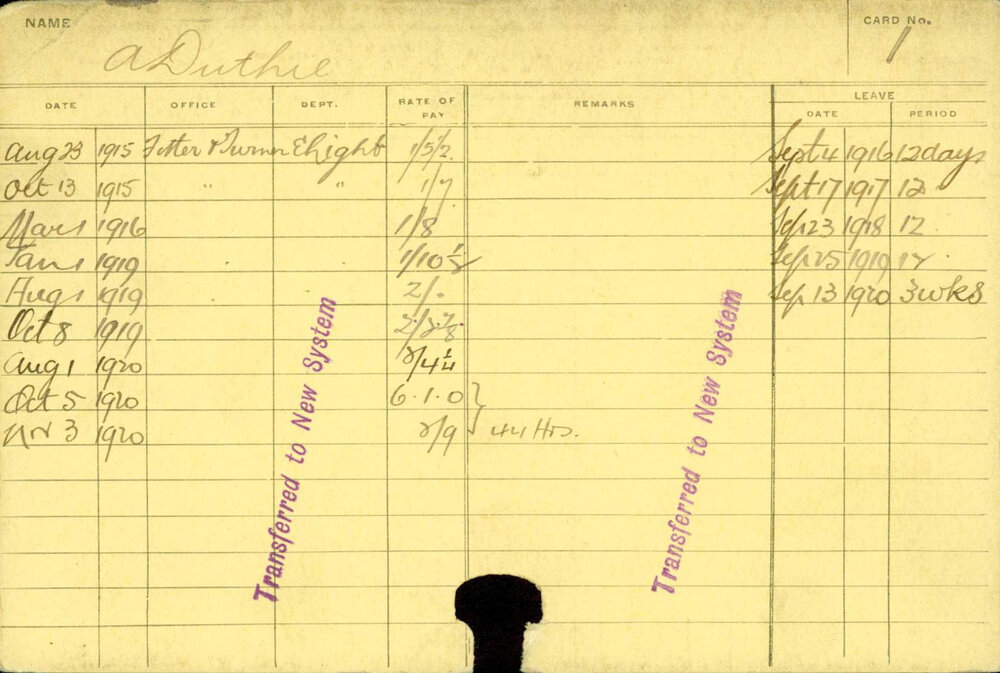 NAME
CARD No.
1
A Duthie
DATE OFFICE DEPT. RATE OF PAY REMARKS LEAVE
DATE PERIOD
Aug 23 1915 Fitter & Turner E Light 1/5½ Sept 4 1916 12 days
Oct 13 1915 " " 1/7 Sept 17 1917 12
Mar 1 1916 1/8 Sep 23 1918 12
Jan 1 1919 1/10½ Sep 25 1919 12
Aug 1 1919 2/. Sep 13 1920 3 wks
Oct 8 1919
Aug 1 1920 2/4¼
Oct 5 1920 6.1.0
Nov 3 1920 2/9 } 44 Hrs.
Transferred to New System
Transferred to New System